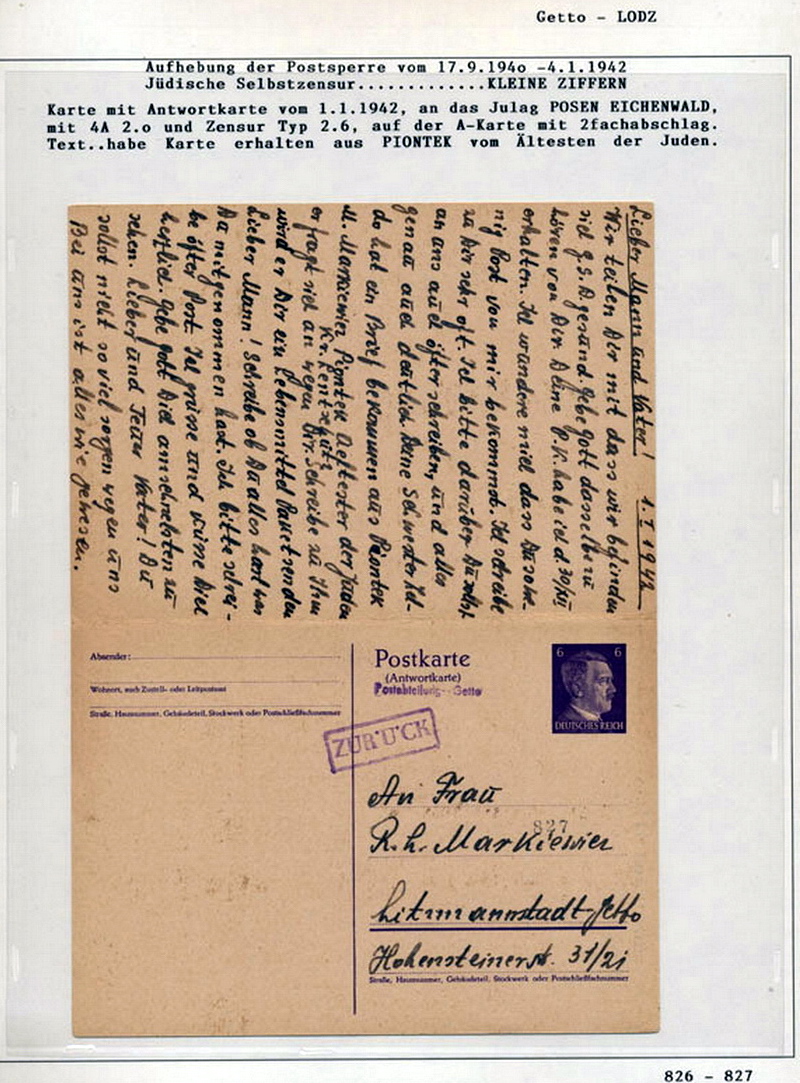 Getto - LODZ
Aufhebung der Postsperre vom 17.9.194o -4.1.1942
Jüdische Selbstzensur.............KLEINE ZIFFERN
Karte mit Antwortkarte vom 1.1.1942, an das Julag POSEN EICHENWALD,
mit 4A 2.o und Zensur Typ 2.6, auf der A-Karte mit 2fachabschlag.
Text..habe Karte erhalten aus PIONTEK vom Ältesten der Juden.
1. I 1942
Lieber Mann und Vater!
Wir teilen Dir mit dass wir befinden
sich G.S.D. gesund. Gebe Gott dasselbe zu
hören von Dir. Deine P.K. habe ich d. 30/XII
erhalten. Ich wundere mich dass Du so we-
nig Post von mir bekommst. Ich schreibe
zu Dir sehr oft. Ich bitte darüber Du sollst
an uns auch öfter schreiben, und alles
genau auch deutlich. Deine Schwester
do hat ein Brief bekommen aus Piontek
M. Markiewicz Piontek Aeltester der Juden
Kr. Lentschütz
er fragt sich an wegen Dir. Schreibe zu Ihm
wird er Dir ein Lebensmittel Paket senden
Lieber Mann! Schreibe ob Du alles hast was
Du mitgenommen hast. Ich bitte schrei-
be öfter Post. Ich grüsse und küsse Dich
herzlich. Gebe Gott Dich am schnellsten zu
sehen. Lieber und Teuer Vater! Du
sollst nicht so viel sorgen wegen uns
Bei uns ist alles wie gewesen.
Absender:
Wohnort, auch Zustell- oder Leitpostamt
Straße, Hausnummer, Gebäudeteil, Stockwerk oder Postschließfachnummer
Postkarte
(Antwortkarte)
Postabteilung - Getto
6 6
DEUTSCHES REICH
ZURÜCK
An Frau
827
R. h. Markiewicz
Litzmannstadt-Getto
Hohensteinerstr. 31/21
Straße, Hausnummer, Gebäudeteil, Stockwerk oder Postschließfachnummer
826 - 827